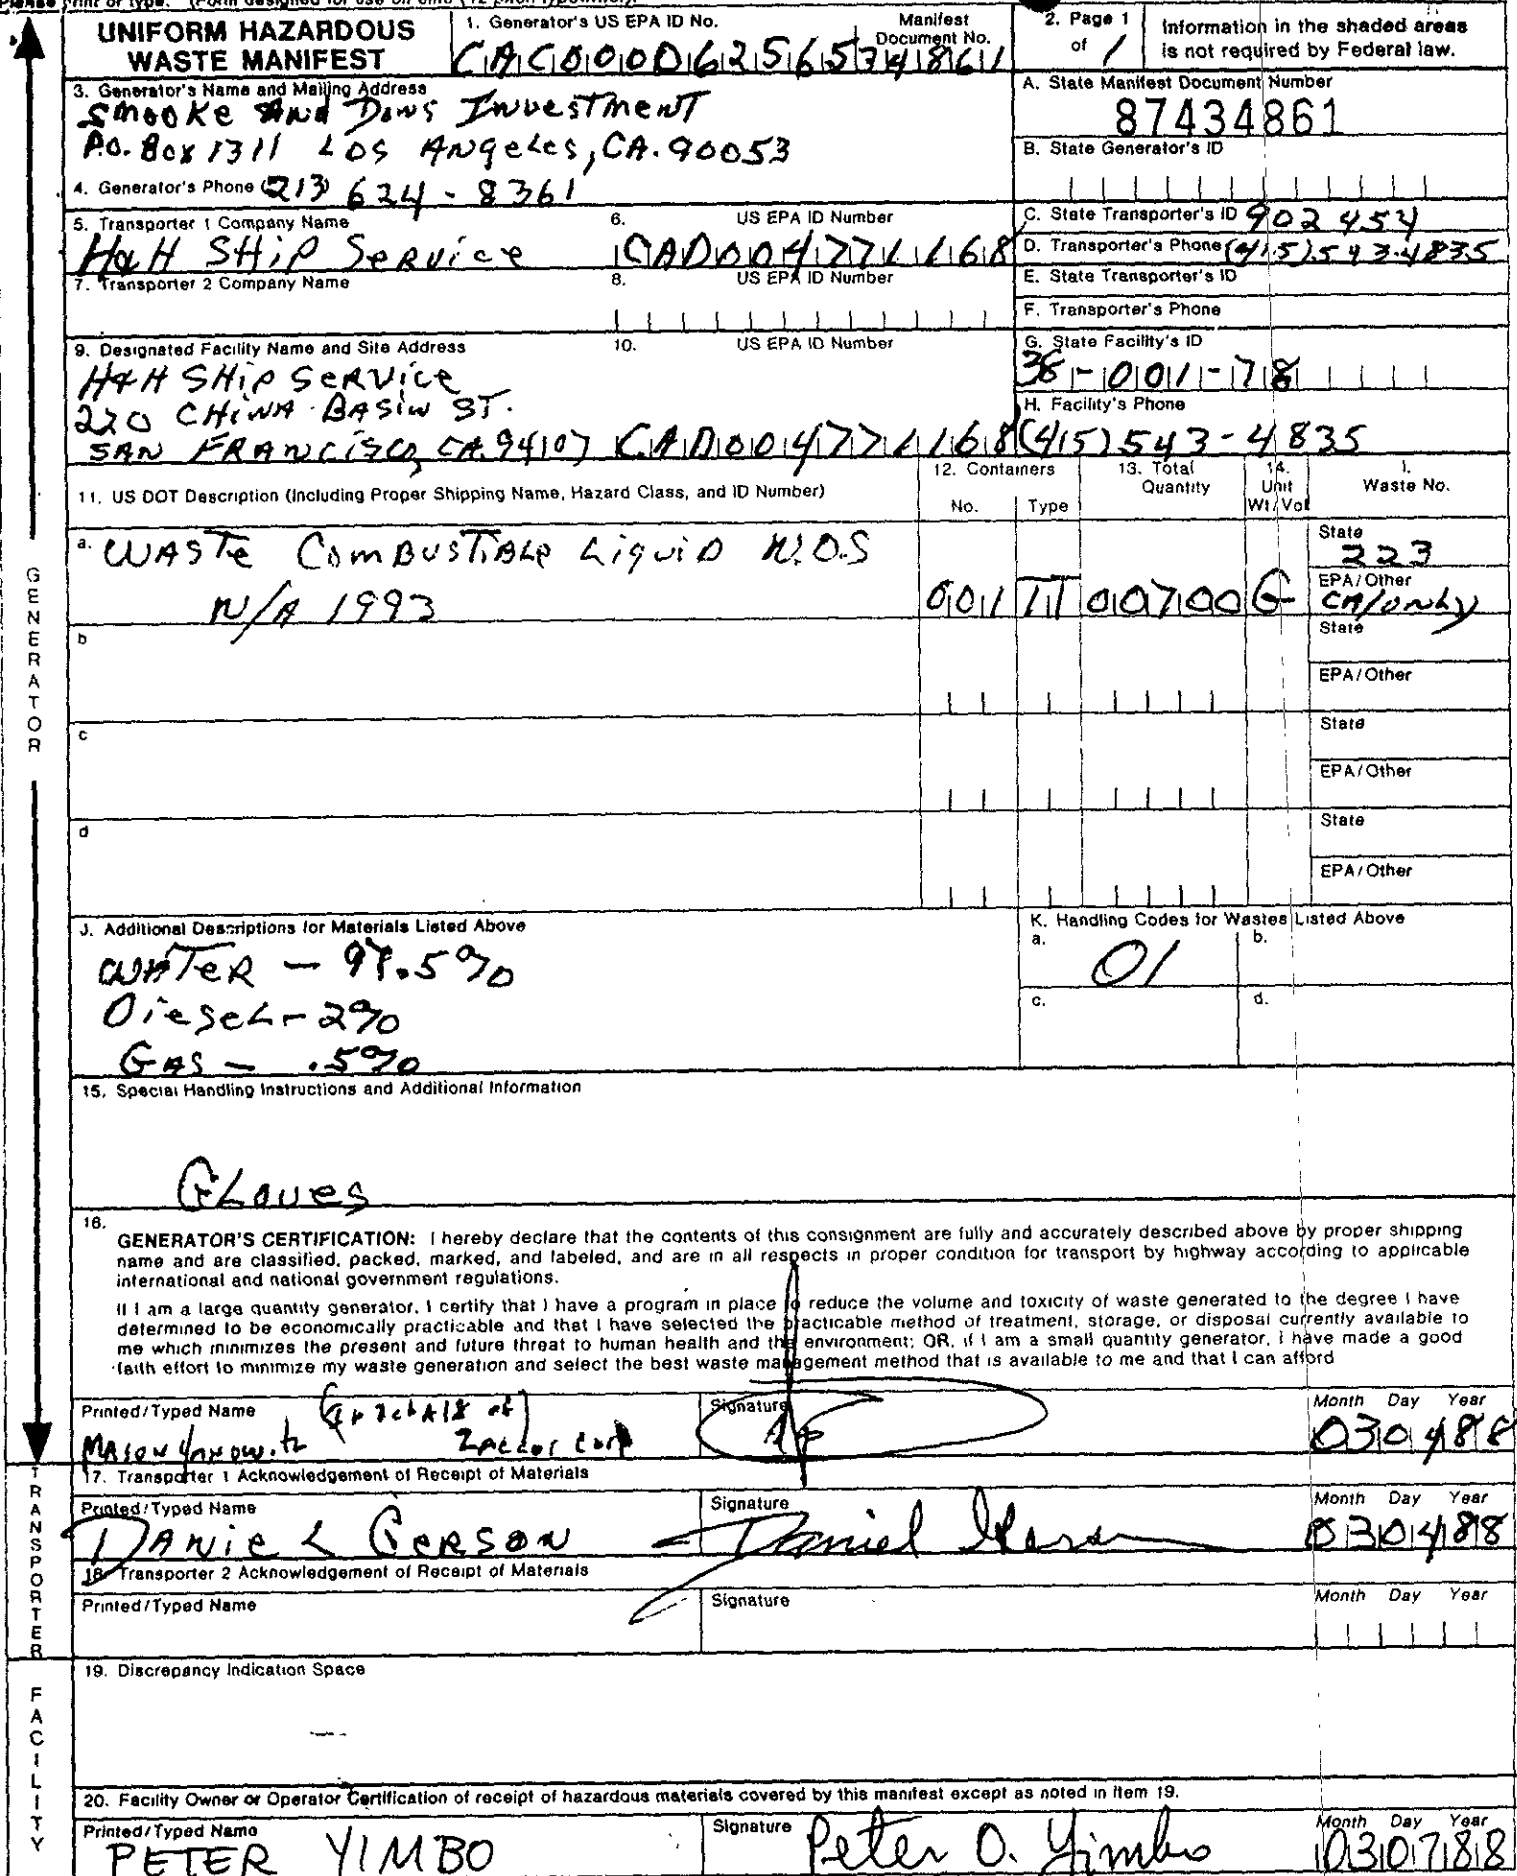 Please print or type. (Form designed for use on elite (12 pitch typewriter).
UNIFORM HAZARDOUS
WASTE MANIFEST
1. Generator's US EPA ID No.
Manifest
Document No.
CAC000062565 34861
2. Page 1
of 1
Information in the shaded areas
is not required by Federal law.
3. Generator's Name and Mailing Address
Smooke And Dons Investment
P.O. Box 1311 Los Angeles, CA. 90053
4. Generator's Phone (213) 624-8361
A. State Manifest Document Number
87434861
B. State Generator's ID
5. Transporter 1 Company Name
H&H SHip Service
6. US EPA ID Number
CAD004771168
C. State Transporter's ID 902454
D. Transporter's Phone (415) 543-4835
7. Transporter 2 Company Name
8. US EPA ID Number
E. State Transporter's ID
F. Transporter's Phone
9. Designated Facility Name and Site Address
10. US EPA ID Number
H&H SHip Service
220 CHiNA BASiN ST.
SAN FRANCiSCO, CA. 94107 CAD004771168
G. State Facility's ID
38-001-78
H. Facility's Phone
(415) 543-4835
11. US DOT Description (Including Proper Shipping Name, Hazard Class, and ID Number)
12. Containers
No. Type
13. Total
Quantity
14.
Unit
Wt/Vol
I.
Waste No.
a. WASTe ComBUSTiBLe LiquiD N.O.S
N/A 1993
001 TT 00700 G
State
223
EPA/Other
CA/only
b
State
EPA/Other
c
State
EPA/Other
d
State
EPA/Other
J. Additional Descriptions for Materials Listed Above
WATeR - 97.5%
DieseL - 2%
GAS - .5%
K. Handling Codes for Wastes Listed Above
a. 01
b.
c.
d.
15. Special Handling Instructions and Additional Information
GLoves
16.
GENERATOR'S CERTIFICATION: I hereby declare that the contents of this consignment are fully and accurately described above by proper shipping
name and are classified, packed, marked, and labeled, and are in all respects in proper condition for transport by highway according to applicable
international and national government regulations.
If I am a large quantity generator, I certify that I have a program in place to reduce the volume and toxicity of waste generated to the degree I have
determined to be economically practicable and that I have selected the practicable method of treatment, storage, or disposal currently available to
me which minimizes the present and future threat to human health and the environment; OR, if I am a small quantity generator, I have made a good
faith effort to minimize my waste generation and select the best waste management method that is available to me and that I can afford
Printed/Typed Name
Mason Yanowitz
Signature
Month Day Year
030488
17. Transporter 1 Acknowledgement of Receipt of Materials
Printed/Typed Name
DANieL GeRSON
Signature
Daniel Gerson
Month Day Year
030488
18. Transporter 2 Acknowledgement of Receipt of Materials
Printed/Typed Name
Signature
Month Day Year
19. Discrepancy Indication Space
20. Facility Owner or Operator Certification of receipt of hazardous materials covered by this manifest except as noted in Item 19.
Printed/Typed Name
PETER YIMBO
Signature
Peter O. Yimbo
Month Day Year
030788
GENERATOR
TRANSPORTER
FACILITY